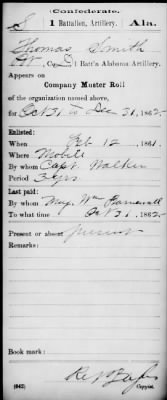 Confederate.
S 1 Battalion, Artillery. Ala.
Thomas Smith
Pvt, Co. D, 1 Batt'n Alabama Artillery.
Appears on
Company Muster Roll
of the organization named above,
for Oct 31 to Dec 31, 1862.
Enlisted:
When Feb 12, 1861.
Where Mobile
By whom Capt. Walker
Period 3 yrs
Last paid:
By whom Maj. Wm
To what time Oct 31, 1862.
Present or absent present
Remarks:
Book mark:
(642) Copyist.